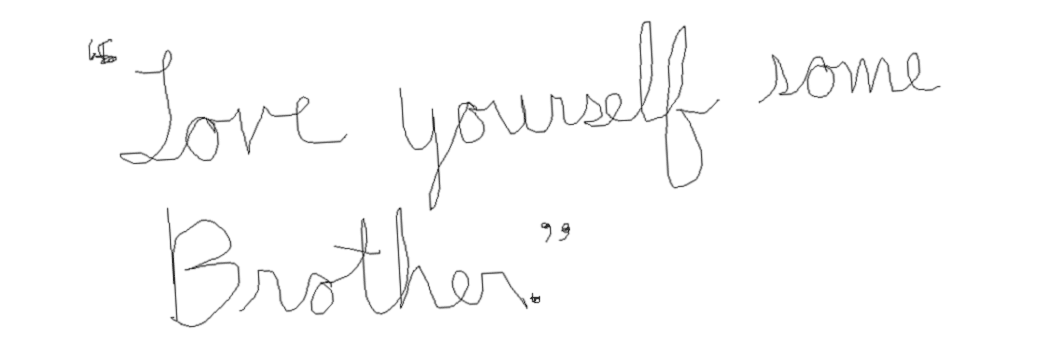 "Love yourself some
Brother."